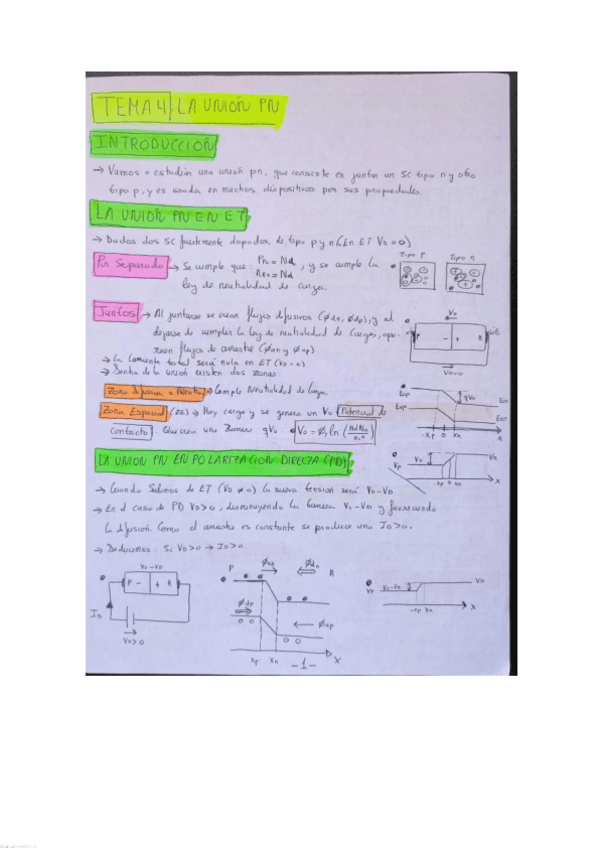 TEMA 4: LA UNIÓN PN
INTRODUCCIÓN
→ Vamos a estudiar una unión pn, que consiste en juntar un SC tipo n y otro
tipo p, y es usada en muchos dispositivos por sus propiedades.
LA UNIÓN PN EN ET
→ Dados dos SC fuertemente dopados, de tipo p y n (En ET V₀ = 0)
Por Separado → Se cumple que: , y se cumple la
ley de neutralidad de carga.
Tipo P
Tipo n
Juntos → Al juntarse se crean flujos difusivos (φdn, φdp), y al
dejarse de cumplir la ley de neutralidad de cargas, apa-
recen flujos de arrastre (φan y φap).
→ La corriente total será nula en ET
→ Dentro de la unión existen dos zonas:
Zona → Cumple Neutralidad de Carga
Zona Espacial (ZE) → Hay carga y se genera un V₀ (Potencial de
contacto). Que crea una Barrera qV₀. V₀ = φt ln
P - + n
-Xp 0 Xn
qV₀
LA UNIÓN PN EN POLARIZACIÓN DIRECTA (PD)
Vp V₀ Vn
-Xp 0 Xn X
→ Cuando Salimos de ET (VD ≠ 0) la nueva tensión será V₀-VD
→ En el caso de PD VD>0, disminuyendo la barrera V₀-VD y favoreciendo
la difusión. Como el arrastre es constante se produce una ID>0.
→ Deducimos: Si VD>0 → ID>0.
V₀-VD
P - + n
ID
VD>0
P φdn n
φdp φap
Xp Xn X
Vp V₀-VD Vn
-Xp Xn X
-1-